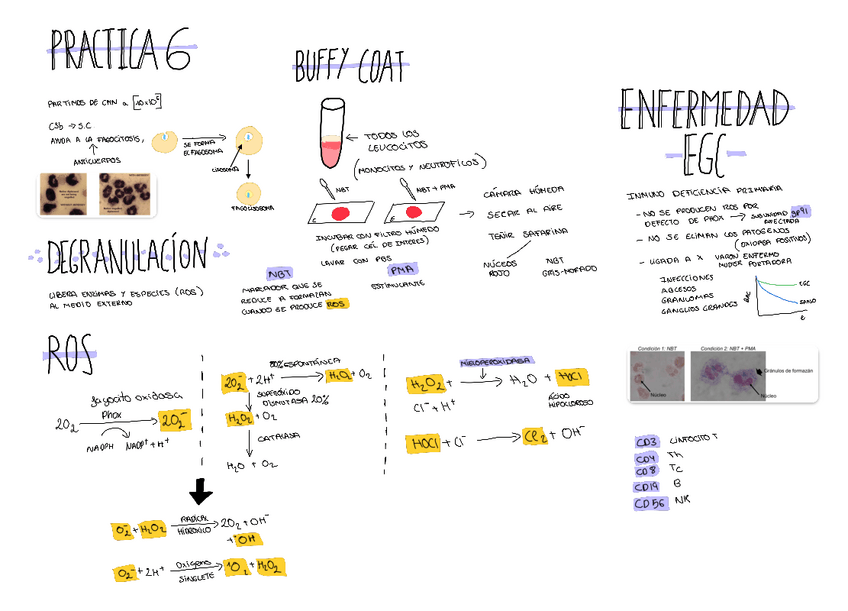 PRACTICA 6
PARTIMOS DE CMN a [10x10⁶]
C3b → S.C.
AYUDA A LA FAGOCITOSIS,
ANTICUERPOS
SE FORMA
EL FAGOSOMA
LISOSOMA
FAGOLISOSOMA
DEGRANULACÍON
LIBERA ENZIMAS Y ESPECIES (ROS)
AL MEDIO EXTERNO
BUFFY COAT
← TODOS LOS
LEUCOCITOS
(MONOCITOS Y NEUTROFILOS)
NBT
NBT + PMA
INCUBAR CON FILTRO HÚMEDO
(PEGAR CÉL DE INTERES)
LAVAR CON PBS
→ CÁMARA HÚMEDA
SECAR AL AIRE
TEÑIR SAFARINA
NÚCLEOS
ROJO
NBT
GRIS-MORADO
NBT
MARCADOR QUE SE
REDUCE A FORMAZAN
CUANDO SE PRODUCE ROS
PMA
ESTIMULANTE
ENFERMEDAD
EGC
INMUNO DEFICIENCIA PRIMARIA
- NO SE PRODUCEN ROS POR
DEFECTO DE PHOX → SUBUNIDAD gp91
AFECTADA
- NO SE ELIMAN LOS PATOGENOS
- LIGADA A X
VARON ENFERMO
MUJER PORTADORA
INFECCIONES
ABCESOS
GRANULOMAS
GANGLIOS GRANDES
EGC
SANO
t
Condición 1: NBT
Núcleo
Condición 2: NBT + PMA
Gránulos de formazán
Núcleo
CD3 LINFOCITO T
CD4 Th
CD8 Tc
CD19 B
CD56 NK
ROS
fagocito oxidasa
Phox
2O₂ → 2O₂⁻
NADPH NADP⁺ + H⁺
80% ESPONTÁNICA
2O₂⁻ + 2H⁺ → H₂O₂ + O₂
SUPERÓXIDO
DISMUTASA 20%
H₂O₂ + O₂
CATALASA
H₂O + O₂
MIELOPEROXIDASA
H₂O₂ + → H₂O + HOCl
Cl⁻ + H⁺
ÁCIDO
HIPOCLOROSO
HOCl + Cl⁻ → Cl₂ + OH⁻
RADICAL
HIDROXICO
O₂⁻ + H₂O₂ → 2O₂ + OH⁻
+ ·OH
OXÍGENO
SINGLETE
O₂⁻ + 2H⁺ → ¹O₂ + H₂O₂